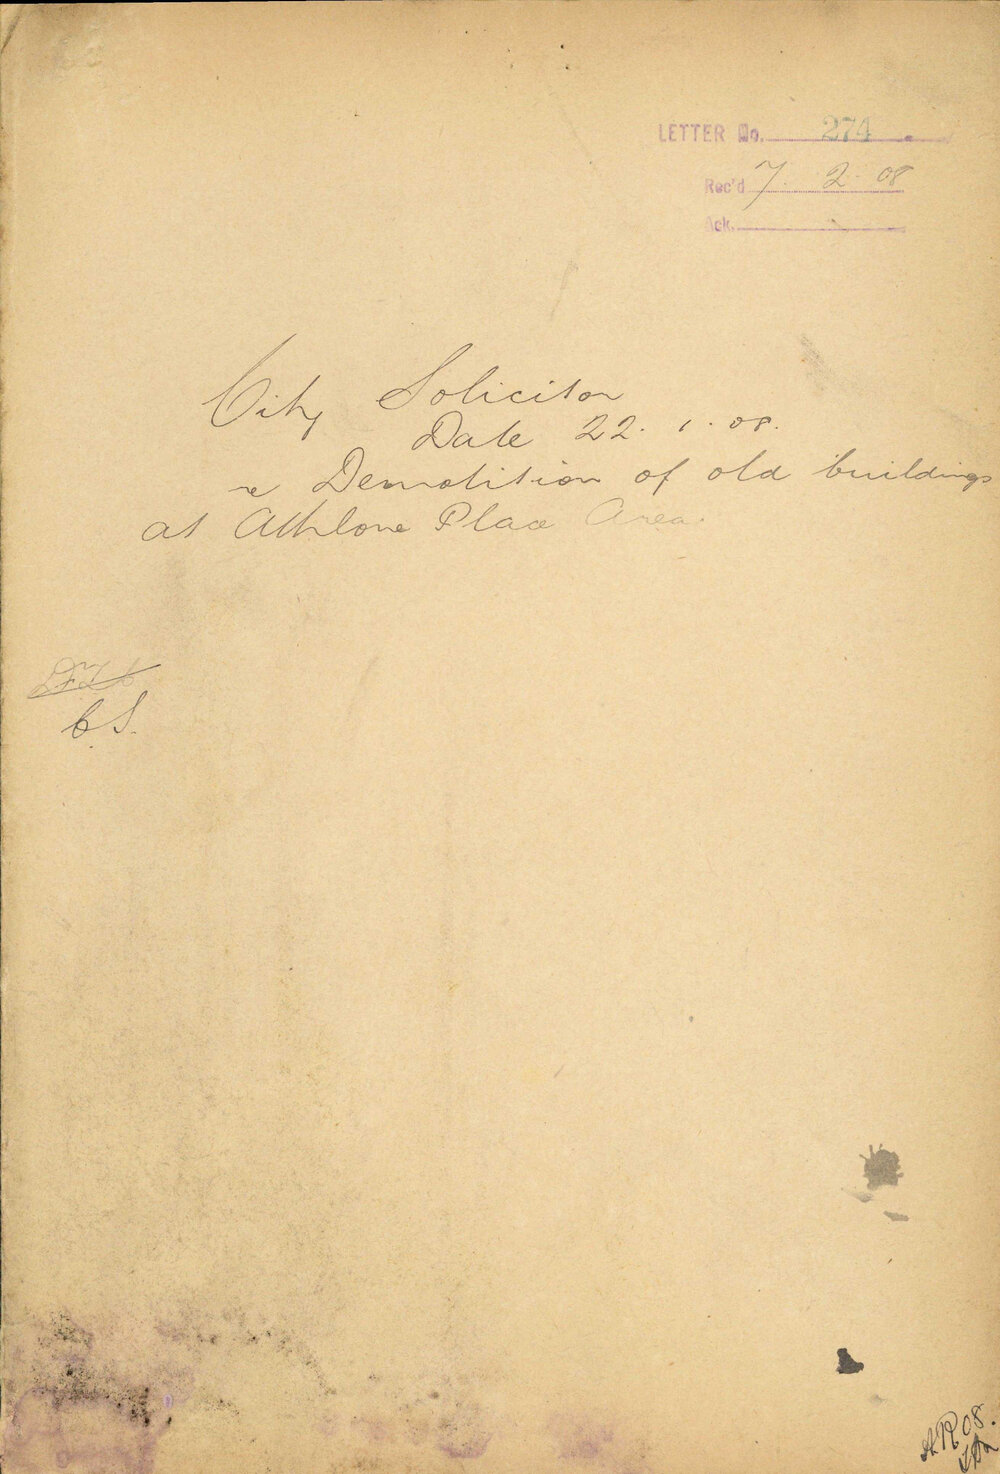 LETTER No. 274
Rec'd 7. 2. 08
Ack.
City Solicitor
Date 22. 1. 08.
re Demolition of old buildings
at Athlone Place Area.
C.S.
AR 08.